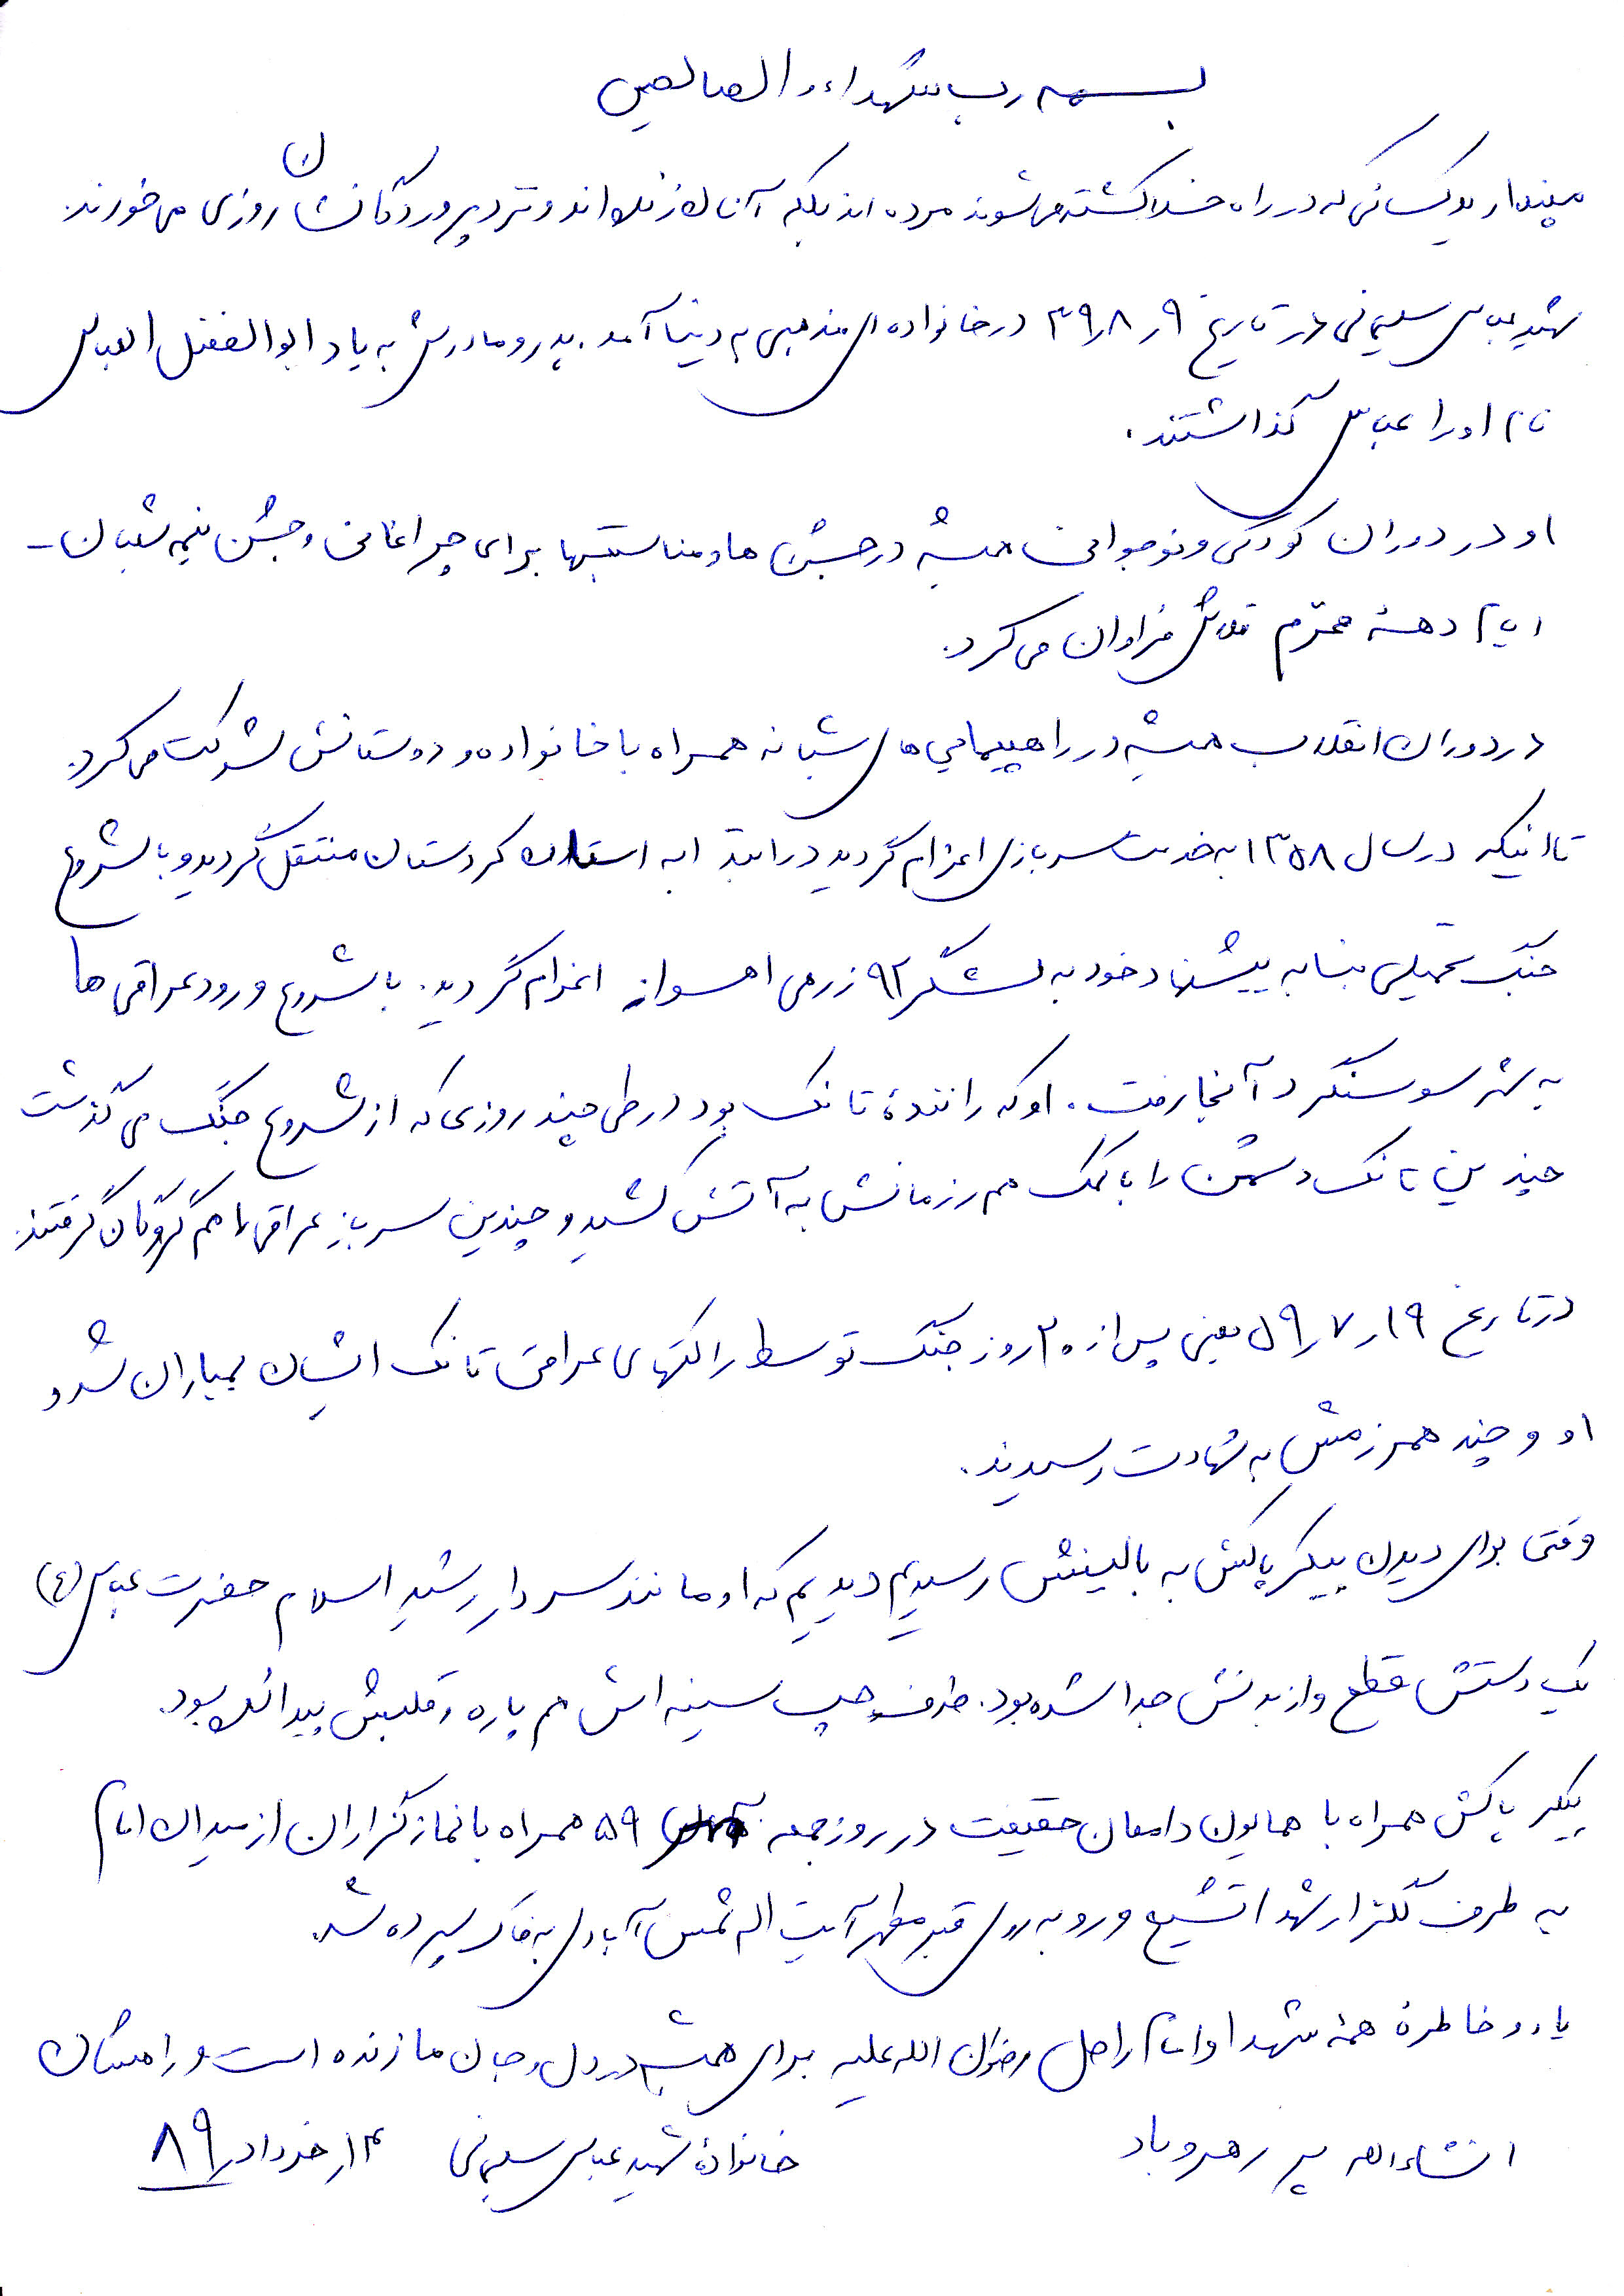 بسمه رب الشهداء و الصالحین
مپندارید کسانی که در راه خدا کشته می شوند مرده اند بلکه آنان زنده اند و نزد پروردگانشان روزی می خورند.
شهید عباس سلیمانی در تاریخ ۹ر۸ر۳۹ در خانواده ای مذهبی به دنیا آمد. پدر و مادرش به یاد ابوالفضل العباس
نام او را عباس گذاشتند.
او در دوران کودکی و نوجوانی همیشه در جشن ها و مناسبتها برای چراغانی و جشن نیمه شعبان -
ایام دههٔ محرّم تلاش فراوان می کرد.
در دوران انقلاب همیشه در راهپیمایی های شبانه همراه با خانواده و دوستانش شرکت می کرد.
تا اینکه در سال ۱۳۵۸ به خدمت سربازی اعزام گردید در ابتدا به استان کردستان منتقل گردید و با شروع
جنگ تحمیلی بنا به پیشنهاد خود به لشگر ۹۲ زرهی اهواز اعزام گردید. با شروع ورود عراقی ها
به شهر سوسنگرد آنجا رفت. او که رانندهٔ تانک بود در طی چند روزی که از شروع جنگ می گذشت
چندین تانک دشمن را با کمک هم رزمانش به آتش کشید و چندین سرباز عراقی را هم گروگان گرفتند.
در تاریخ ۱۹ر۷ر۵۹ یعنی پس از ۲۰ روز جنگ توسط راکتهای عراقی تانک ایشان بمباران شد و
او و چند همرزمش به شهادت رسیدند.
وقتی برای دیدن پیکر پاکش به بالینش رسیدیم دیدیم که او مانند سردار رشید اسلام حضرت عباس (ع)
یک دستش قطع و از بدنش جدا شده بود. طرف چپ سینه اش هم پاره و قلبش پیدا بود.
پیکر پاکش همراه با همایون حقیقت در روز جمعه ۵۹ همراه با نمازگزاران از میدان امام
به طرف گلزار شهدا تشییع و روبه روی قبر مطهر آیت اله شمس آبادی به خاک سپرده شد.
یاد و خاطرهٔ همهٔ شهدا و امام راحل رضوان الله علیه برای همیشه در دل و جان ما زنده است و راهشان
انشاءالله پر رهرو باد خانوادهٔ شهید عباس سلیمانی ۱۴ر خرداد ر۸۹